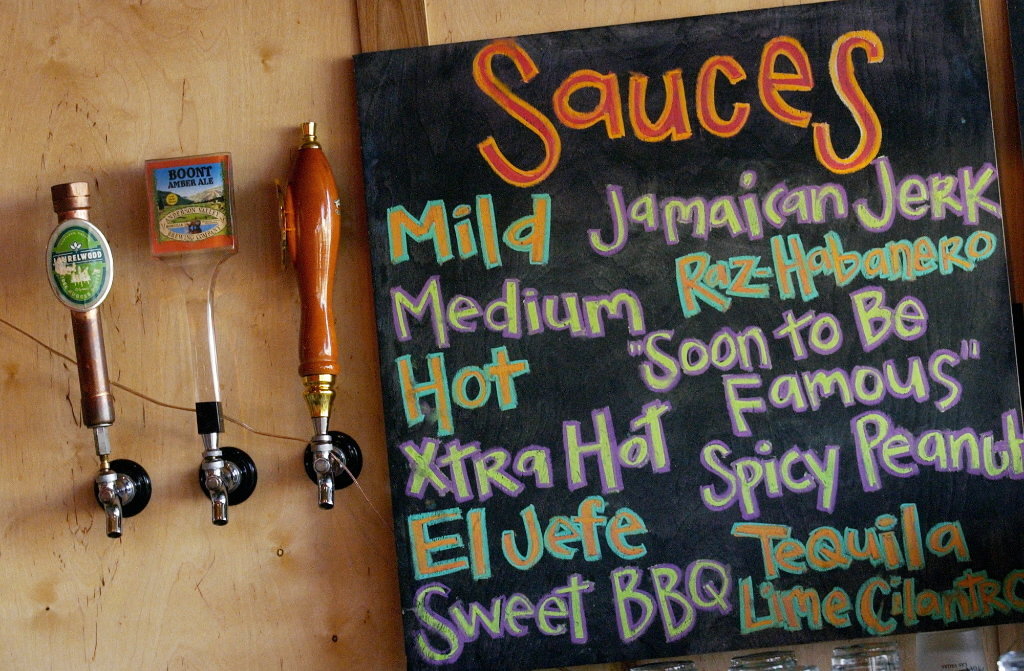 LAURELWOOD
BOONT
AMBER ALE
ANDERSON VALLEY
BREWING COMPANY
Sauces
Mild
Medium
Hot
Xtra Hot
El Jefe
Sweet BBQ
Jamaican Jerk
Raz-Habanero
"Soon to Be
Famous"
Spicy Peanut
Tequila
Lime Cilantro